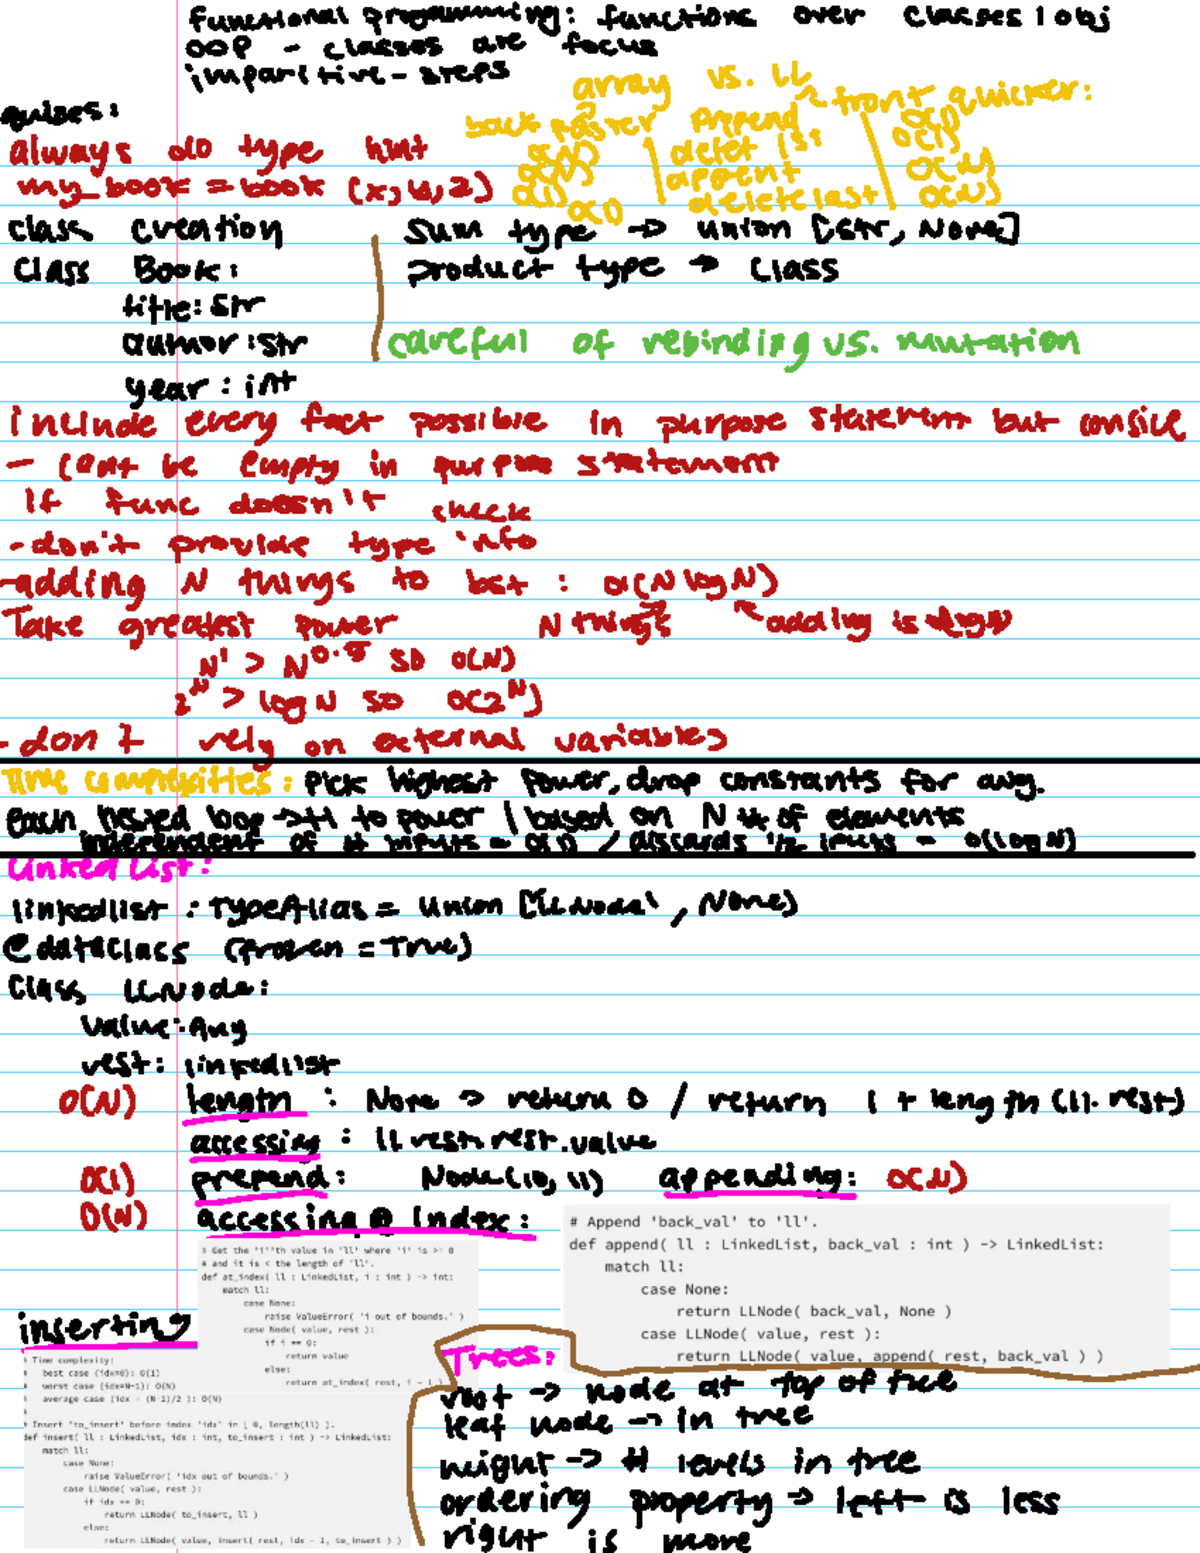 functional progamming: functions over classes / obj
OOP - classes are focus
imparitive - steps
array vs. LL
front quicker:
back faster
prepend O(1)
delet 1st O(1)
append O(N)
O(1) delete last O(N)
always do type hint
my_book = book (x, y, z)
class creation
Class Book:
title: str
author: str
year: int
Sum type → union [str, None]
product type → Class
careful of rebinding vs. mutation
include every fact possible in purpose statement but consice
- cant be empty in purpose statement
if func doesn't check
- don't provide type info
- adding N things to bst : O(N log N)
Take greatest power N things adding is log N
N¹ > N^0.5 so O(N)
2^N > log N so O(2^N)
- don't rely on external variables
Time complexities: Pick highest power, drop constants for avg.
each nested loop → +1 to power / based on N # of elements
independent of # inputs = O(1) / discards 1/2 inputs = O(log N)
Linked List:
linkedlist : TypeAlias = Union ['LLNode', None]
@dataclass (frozen = True)
Class LLNode:
value: Any
rest: linkedlist
O(N) length : None → return 0 / return 1 + length (ll.rest)
accessing : ll.rest.rest.value
O(1) prepend: Node(10, ll) appending: O(N)
O(N) accessing @ index:
# Append 'back_val' to 'll'.
def append( ll : LinkedList, back_val : int ) -> LinkedList:
match ll:
case None:
return LLNode( back_val, None )
case LLNode( value, rest ):
return LLNode( value, append( rest, back_val ) )
# Get the 'i''th value in 'll' where 'i' is >= 0
# and it is < the length of 'll'.
def at_index( ll : LinkedList, i : int ) -> int:
match ll:
case None:
raise ValueError( 'i out of bounds.' )
case Node( value, rest ):
if i == 0:
return value
else:
return at_index( rest, i - 1 )
inserting
# Time complexity:
# best case (idx=0): O(1)
# worst case (idx=N-1): O(N)
# average case (idx - (N-1)/2 ): O(N)
#
# Insert 'to_insert' before index 'idx' in [ 0, length(ll) ).
def insert( ll : LinkedList, idx : int, to_insert : int ) -> LinkedList:
match ll:
case None:
raise ValueError( 'idx out of bounds.' )
case LLNode( value, rest ):
if idx == 0:
return LLNode( to_insert, ll )
else:
return LLNode( value, insert( rest, idx - 1, to_insert ) )
Trees:
root → node at top of tree
leaf node → in tree
height → # levels in tree
ordering property → left is less
right is more